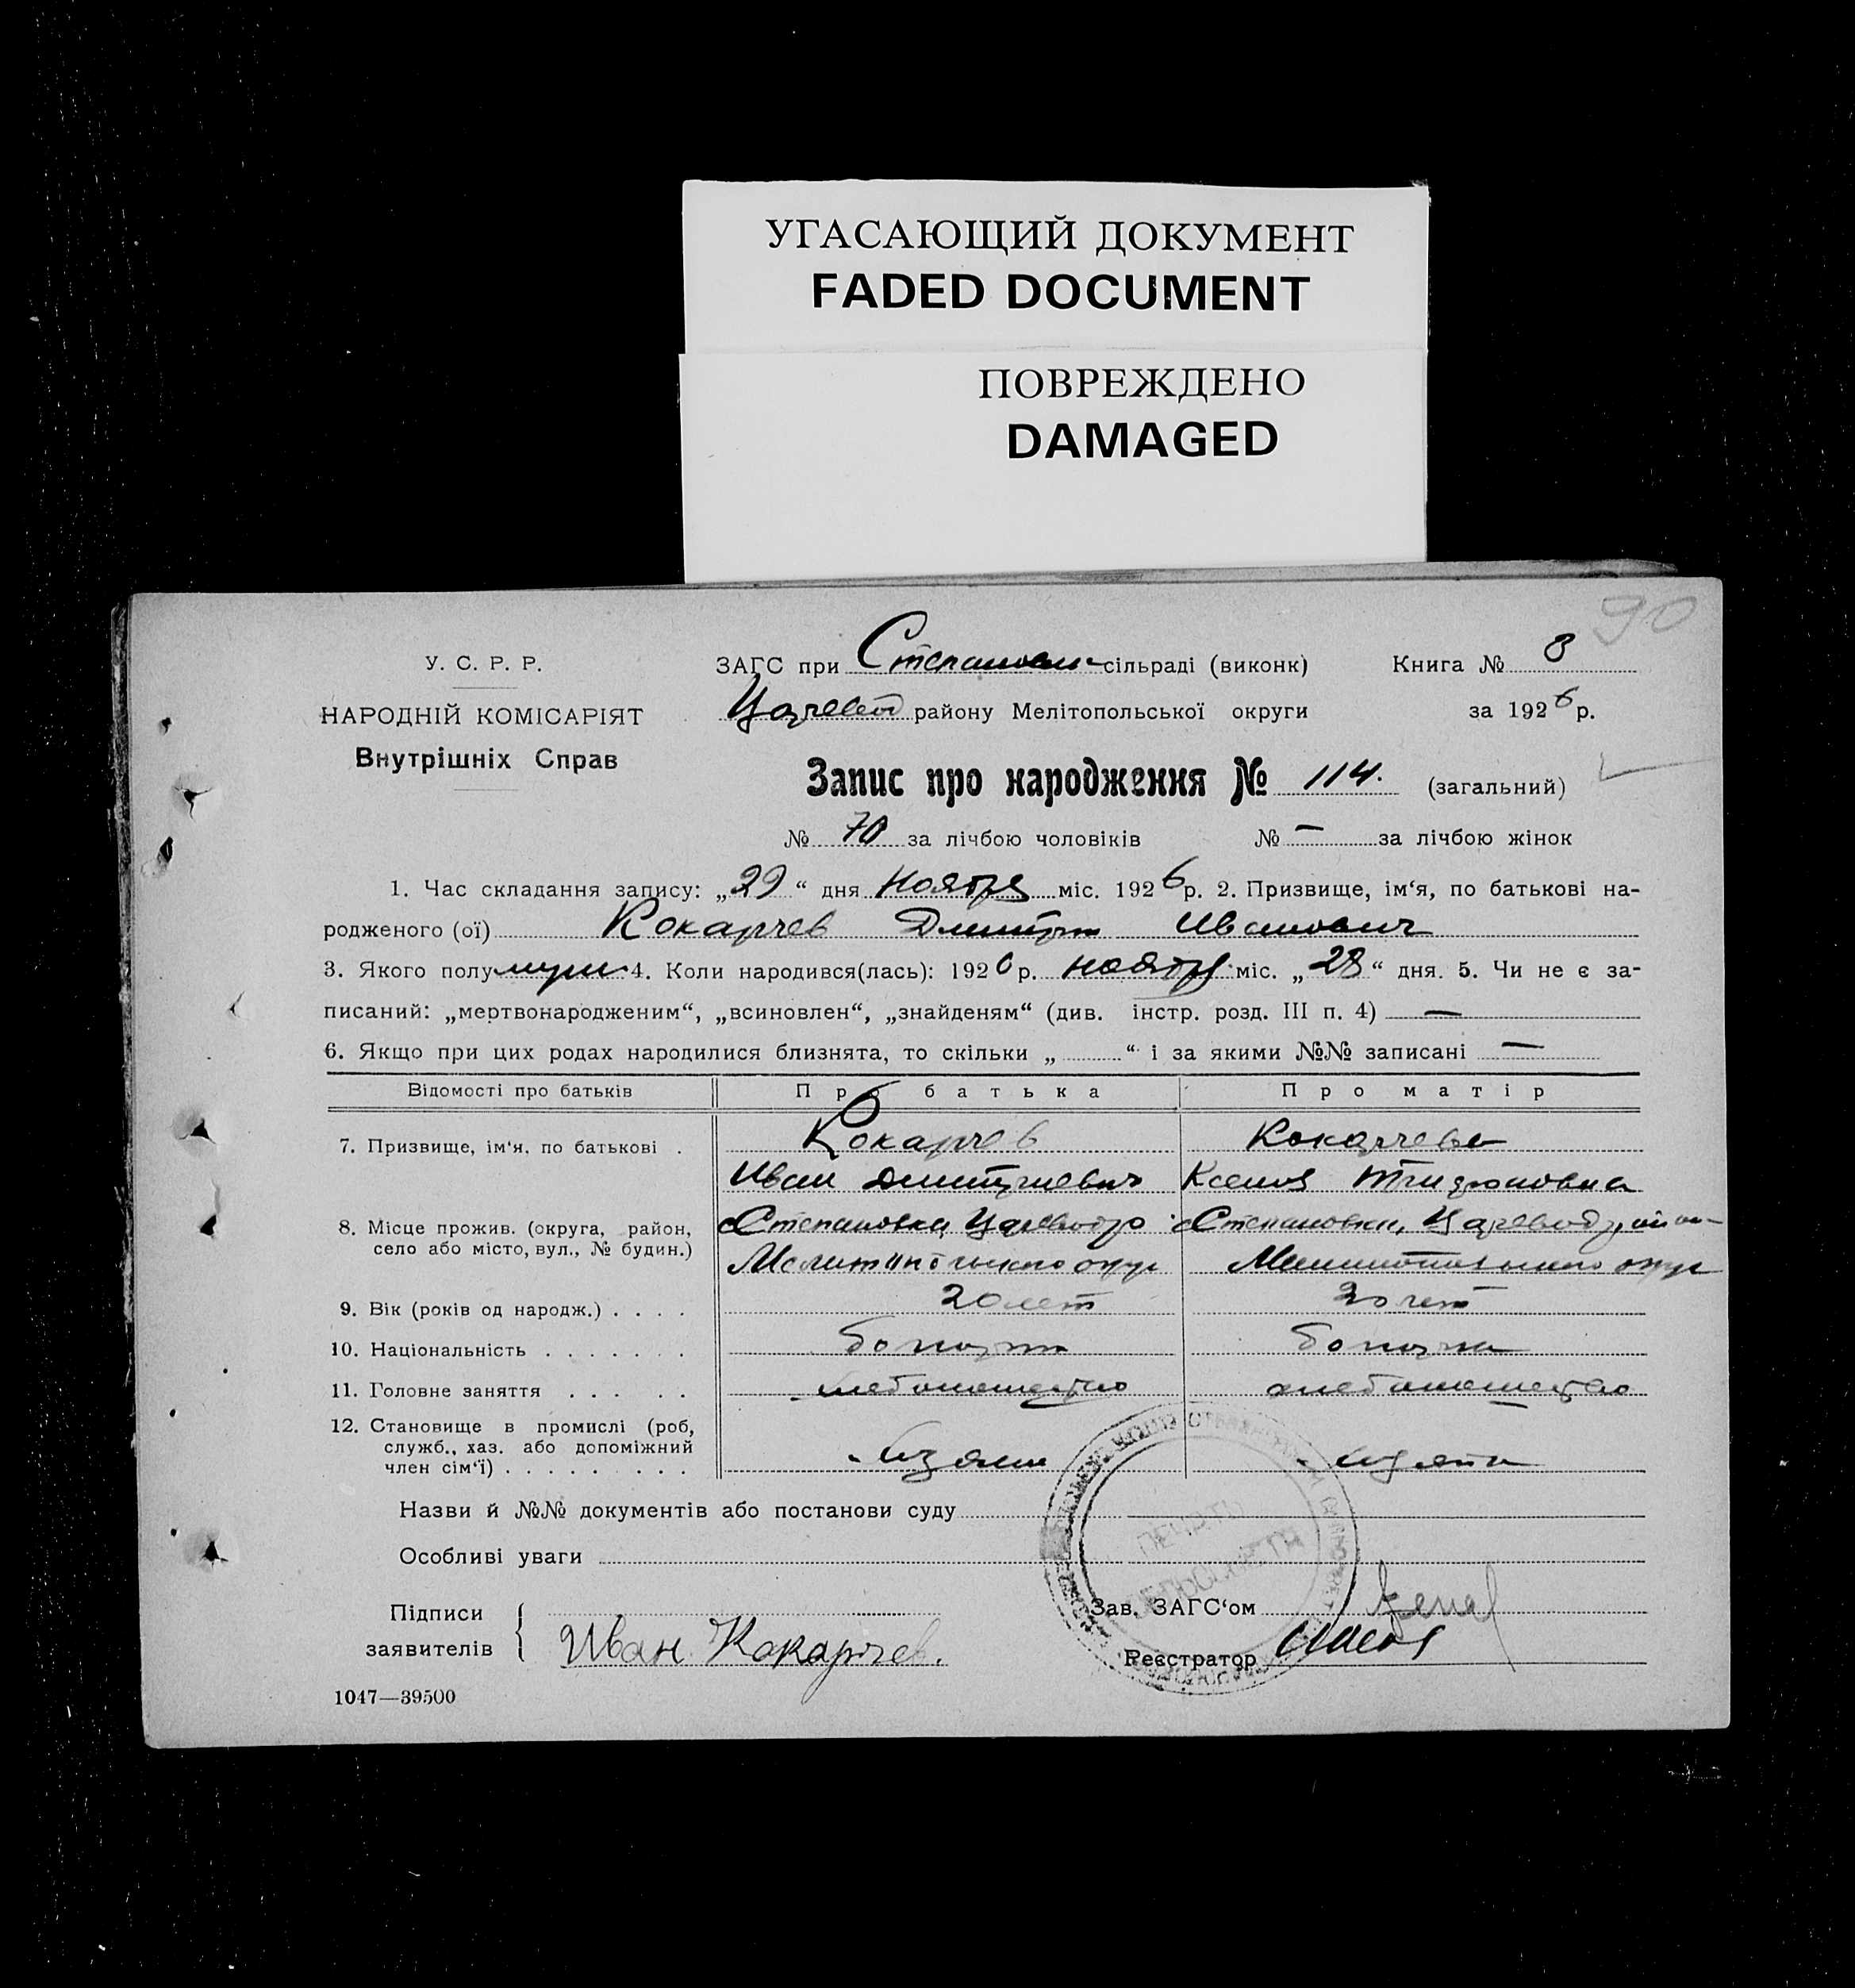 УГАСАЮЩИЙ ДОКУМЕНТ
FADED DOCUMENT
ПОВРЕЖДЕНО
DAMAGED
90
У. С. Р. Р.
НАРОДНІЙ КОМІСАРІЯТ
Внутрішніх Справ
ЗАГС при Степановск сільраді (виконк)
Книга № 8
Царевод району Мелітопольської округи
за 1926 р.
Запис про народження № 114. (загальний)
№ 70 за лічбою чоловіків № — за лічбою жінок
1. Час складання запису: „29“ дня Ноября міс. 1926 р. 2. Призвище, ім‘я, по батькові на-
родженого (ої) Кокарчев Дмитрий Иванович
3. Якого полу муж 4. Коли народився(лась): 1926 р. ноября міс. „28“ дня. 5. Чи не є за-
писаний: „мертвонародженим“, „всиновлен“, „знайденям“ (див. інстр. розд. III п. 4) —
6. Якщо при цих родах народилися близнята, то скільки „ “ і за якими №№ записані —
Відомості про батьків Про батька Про матір
7. Призвище, ім‘я, по батькові . Кокарчев Кокарчева
Иван Дмитриевич Ксения
8. Місце прожив. (округа, район, Степановка, Степановка,
село або місто, вул., № будин.) Мелитопольского округ Мелитопольского округ
9. Вік (років од народж.) . . . . 20 лет 20 лет
10. Національність . . . . . . . болгарин болгарка
11. Головне заняття . . . . . хлебопашество хлебопашество
12. Становище в промислі (роб,
служб., хаз. або допоміжний
член сім‘ї) . . . . . . . . .
Назви й №№ документів або постанови суду
Особливі уваги
ПЕЧАТЬ
СЕЛЬСОВЕТА
Підписи
заявителів { Иван Кокарчев.
Зав. ЗАГС‘ом
Реєстратор
1047—39500